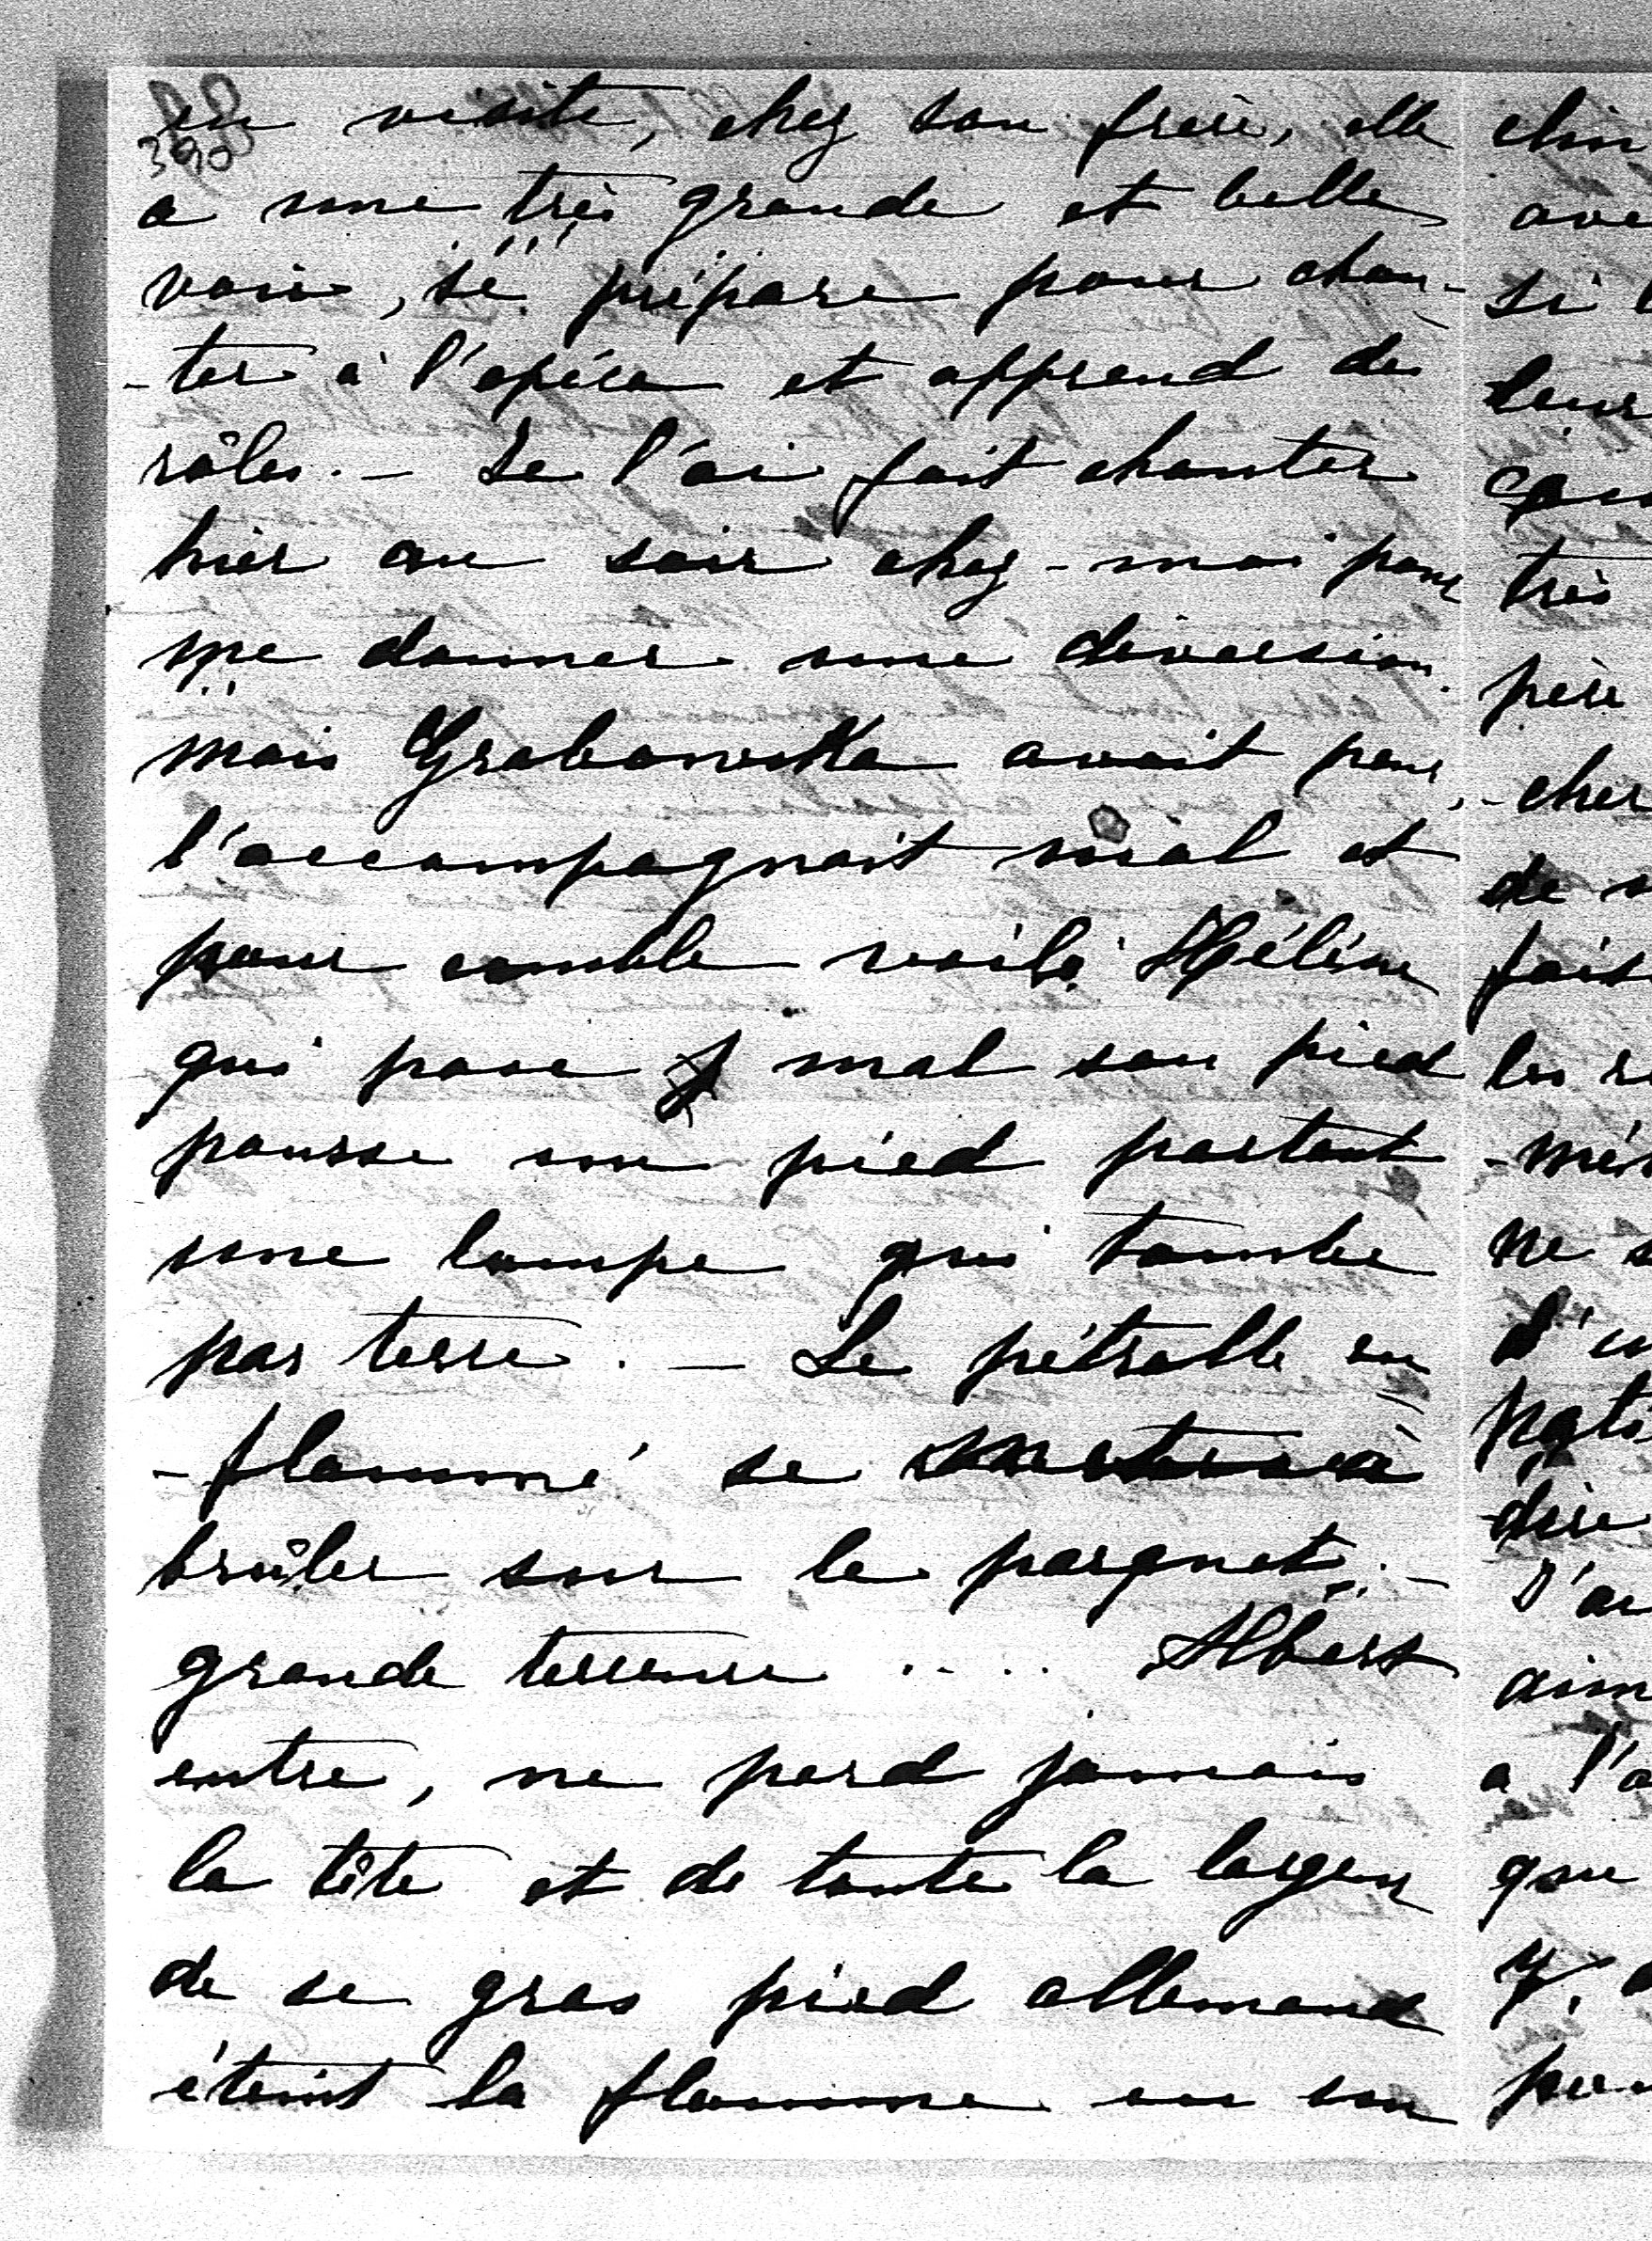 390
en visite, chez son frère, elle
a une très grande et belle
voix, se prépare pour chan-
-ter à l'opéra et apprend des
rôles. — Je l'ai fait chanter
hier au soir chez-moi pour
me donner une diversion.
mais Grabowska avait peur,
l'accompagnait mal et
pour comble voilà Hélène
qui pose mal son pied
pousse un pied portant
une lampe qui tombe
par terre. — Le pétrolle en
-flammé se met à
brûler sur le parquet. —
grande terreur .... Albert
entre, ne perd jamais
la tête et de toute la largeur
de se gros pied allemand
éteint la flamme en un